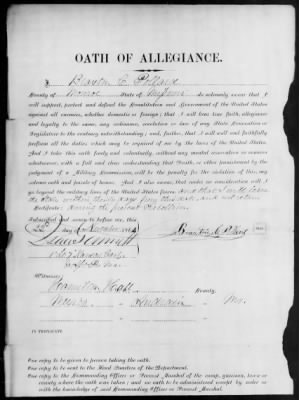 OATH OF ALLEGIANCE.
I, Braxton C Pollard
County of Monroe State of Missouri do solemnly swear that I
will support, protect and defend the Constitution and Government of the United States
against all enemies, whether domestic or foreign; that I will bear true faith, allegiance
and loyalty to the same, any ordinance, resolution or law of any State Convention or
Legislation to the contrary notwithstanding; and, further, that I will well and faithfully
perform all the duties which may be required of me by the laws of the United States.
And I take this oath freely and voluntarily, without any mental reservation or evasion
whatsoever, with a full and clear understanding that Death, or other punishment by the
judgment of a Military Commission, will be the penalty for the violation of this, my
solemn oath and parole of honor. And I also swear that under no consideration will I
go beyond the military lines of the United States forces. And that I will leave
the State within thirty days from this date, and not return
during the present Rebellion.
Certificate:
Subscribed and sworn to before me, this
day of 186
Braxton C Pollard
Witnesses:
Hamilton Hall County,
Mexico Audrain Mo.
IN TRIPLICATE
One copy to be given to person taking the oath.
One copy to be sent to the Head Quarters of the Department.
One copy to the Commanding Officer or Provost Marshal of the camp, garrison, town or
county where the oath was taken; and no oath to be administered except by order or
with the knowledge of said Commanding Officer or Provost Marshal.